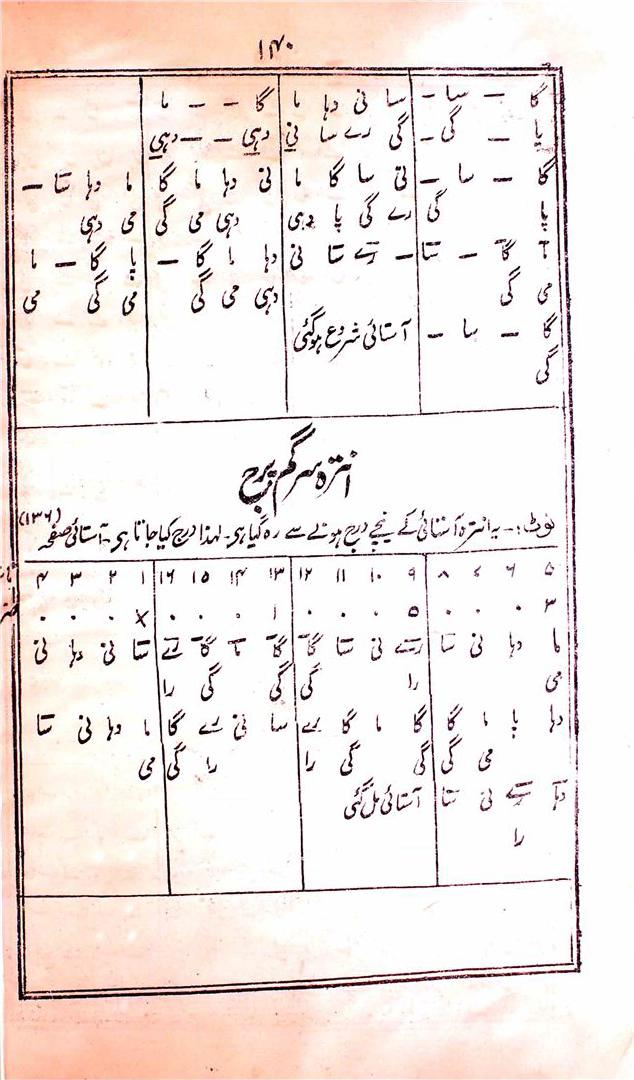 ۱۴۰
گا – سا – سا نی دہا ما گا – – ما
پا – گی – گی رے سا نی دہی – – دہی
گا – سا – نی سا گا ما نی دہا ما گا ما دہا سا –
پا گی رے گی پا دہی دہی می گی می دہی
گا – سا – رے سا نی دہا ما گا – پا گا – ما
می گی دہی می گی می گی می
گا – سا – آستائی شروع ہوگئی
گی
انترہ سرگم برج
نوٹ:۔ یہ انترہ آستائی کے نیچے درج ہونے سے رہ گیا ہی۔ لہذا درج کیا جاتا ہی۔ آستائی صفحہ (۱۳۶)
۵ ۶ ۷ ۸ ۹ ۱۰ ۱۱ ۱۲ ۱۳ ۱۴ ۱۵ ۱۶ ۱ ۲ ۳ ۴
۳ ۰ ۰ ۰ ۵ ۰ ۰ ۰ ۱ ۰ ۰ ۰ × ۰ ۰ ۰
ما دہا نی سا رے نی سا گا گا ما گا رے سا نی دہا نی
می را گی گی گی را
دہا پا ما گا گا ما گا رے سا نی رے گا ما دہا نی سا
می گی گی گی را را گی می
دہا رے نی سا آستائی مل گئی
را